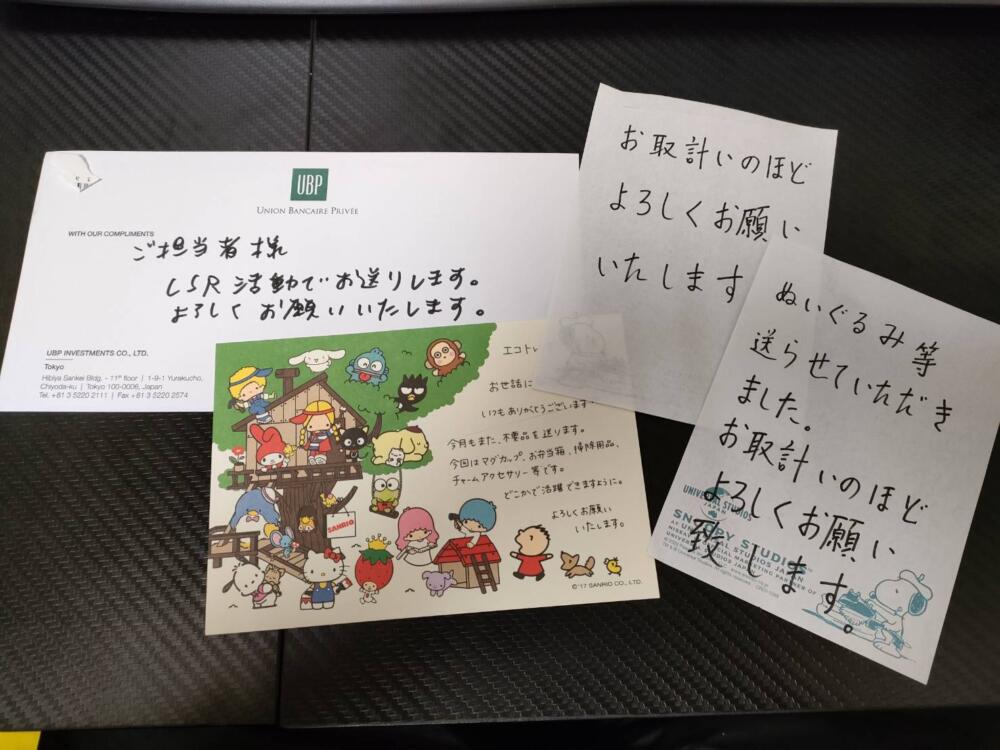 UBP
UNION BANCAIRE PRIVÉE
WITH OUR COMPLIMENTS
ご担当者様
CSR活動でお送りします。
よろしくお願いいたします。
UBP INVESTMENTS CO., LTD.
Tokyo
Hibiya Sankei Bldg. - 11th floor | 1-9-1 Yurakucho,
Chiyoda-ku | Tokyo 100-0006, Japan
Tel. +81 3 5220 2111 | Fax +81 3 5220 2574
お取計いのほど
よろしくお願い
いたします
エコトレ
お世話に
いつもありがとうございます
今月もまた、不要品を送ります。
今回はマグカップ、お弁当箱、掃除用品、
チャームアクセサリー等です。
どこかで活躍できますように。
よろしくお願い
いたします。
SANRIO
©'17 SANRIO CO., LTD.
ぬいぐるみ等
送らせていただき
ました。
お取計いのほど
よろしくお願い
致します。
UNIVERSAL STUDIOS
JAPAN
SNOOPY STUDIO